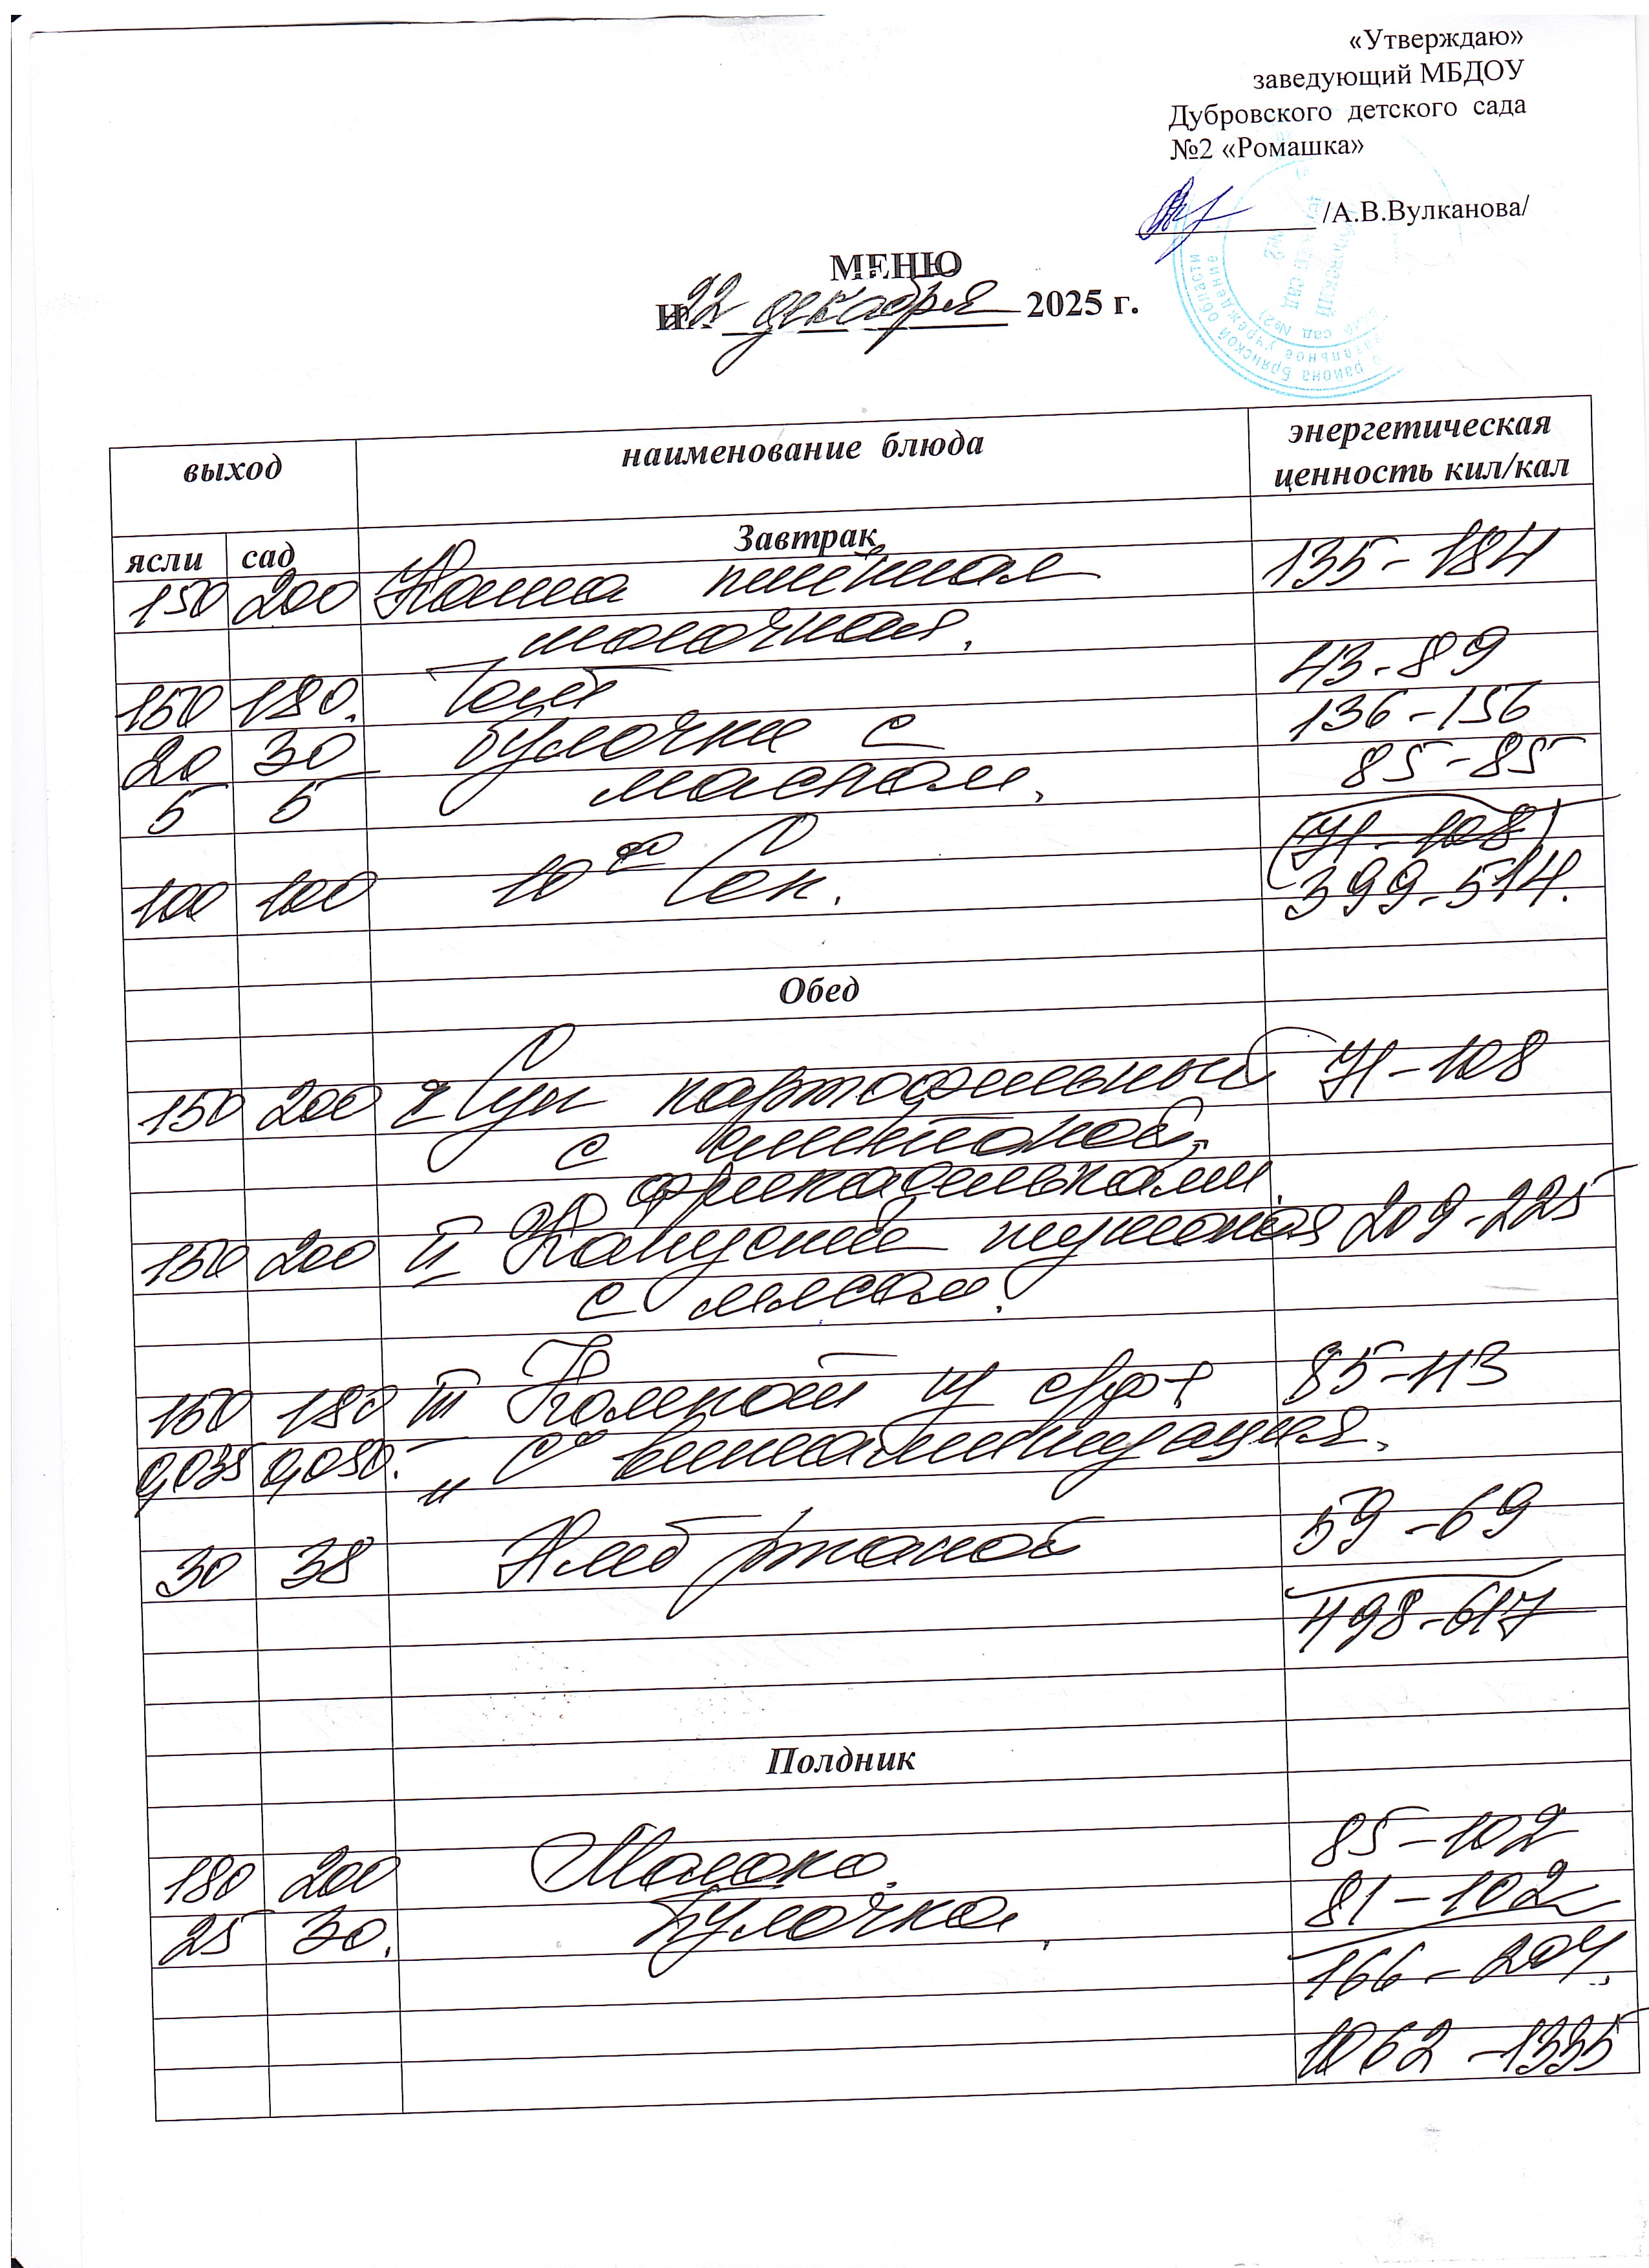 «Утверждаю»
заведующий МБДОУ
Дубровского детского сада
№2 «Ромашка»
/А.В.Вулканова/
МЕНЮ
22 декабря 2025 г.
выход наименование блюда энергетическая
ценность кил/кал
Завтрак
ясли сад
150 200 Каша пшённая 135-184
молочная.
150 180. Чай 43-89
20 30 Булочка с 136-156
5 5 маслом. 85-85
(71-108)
100 100 10 Сок. 399-514.
Обед
150 200 Суп картофельный 71-108
с
фрикадельками.
150 200 II Капуста тушоная 209-225
с мясом.
150 180 III Компот сух 85-113
0,035 0,050. „ С витаминизация.
30 38 Хлеб ржаной 59-69
498-617
Полдник
180 200 Молоко. 85-102
25 30. Булочка. 81-102
166-204.
1062-1335